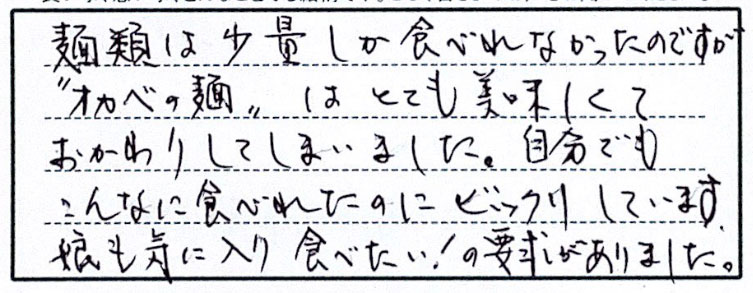 麺類は少量しか食べれなかったのですが
"オカベの麺"はとても美味しくて
おかわりしてしまいました。自分でも
こんなに食べれたのにビックリしています。
娘も気に入り食べたい!の要求がありました。